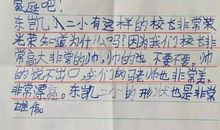 家庭吧!
东凯,二小有这样的校长非常
光荣知道为什么吗?因为我们校长非
常高大非常的帅,帅的也 不要不要,帅
的说不出口,我们的马老师也非常美,
非常漂亮。东凯二小的形状也是非常
雄伟